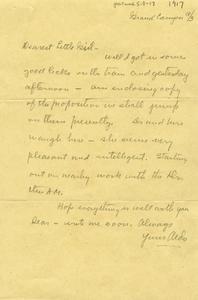 1917
Grand Canyon
Dearest Little Girl -
Well I got in some
good licks on the train and yesterday
afternoon - am enclosing copy
of the proposition we shall
on them presently.
she seems very
pleasant and intelligent. Starting
out on nearby work with the
this AM.
Hope everything is well with you
Dear - write me soon. Always
Yours Aldo